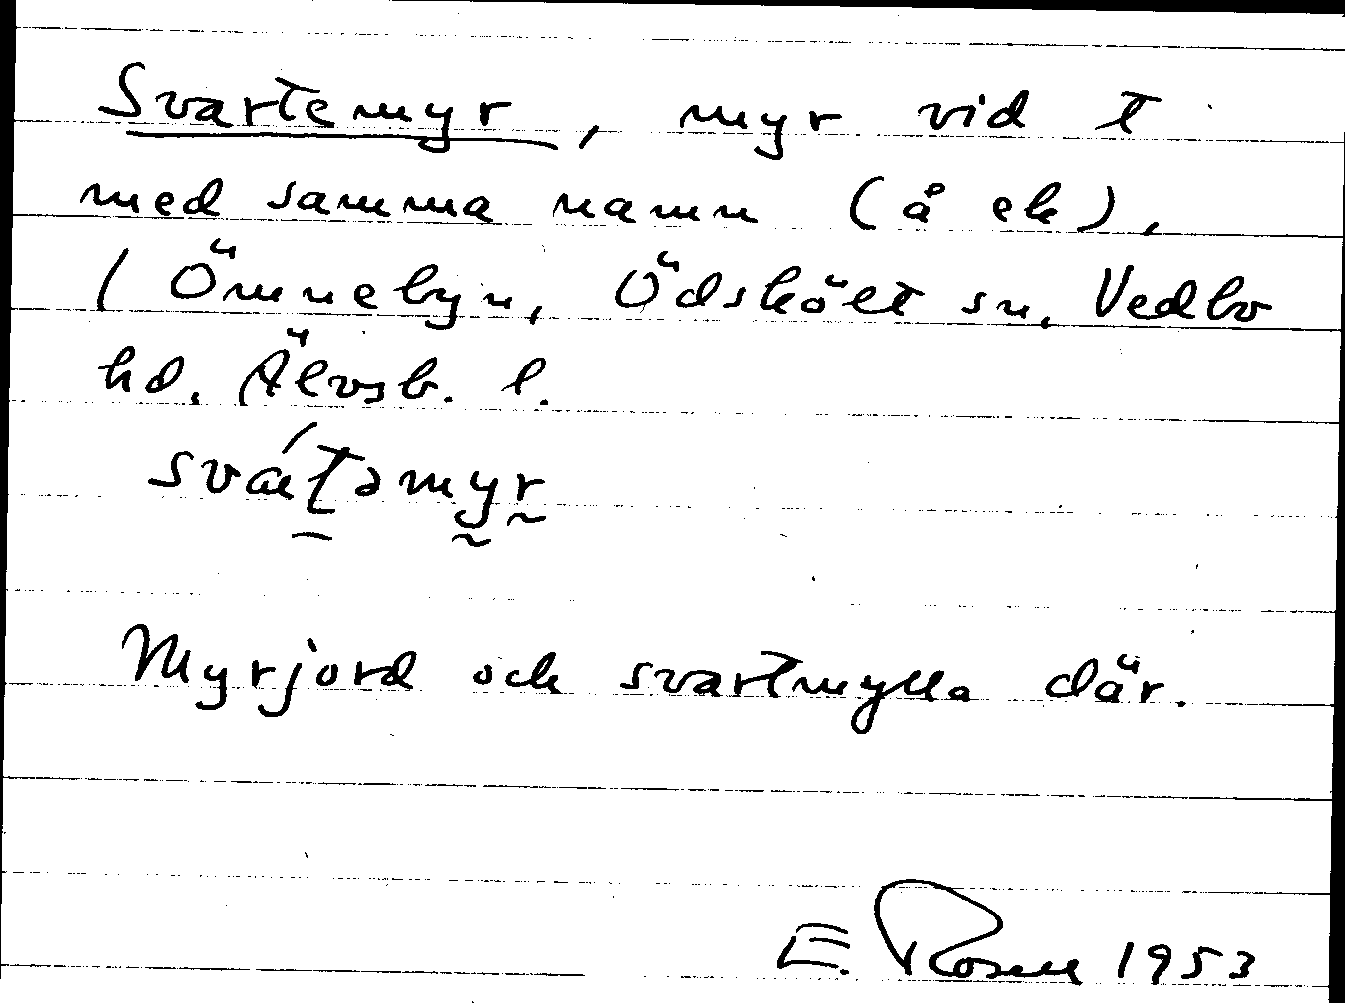 Svartemyr, myr vid t
med samma namn (å ek),
( Ömnebyn, Ödskölt sn, Vedbo
hd. Älvsb. l.
svátəmyr
Myrjord och svartmylla där.
E. Rosell 1953